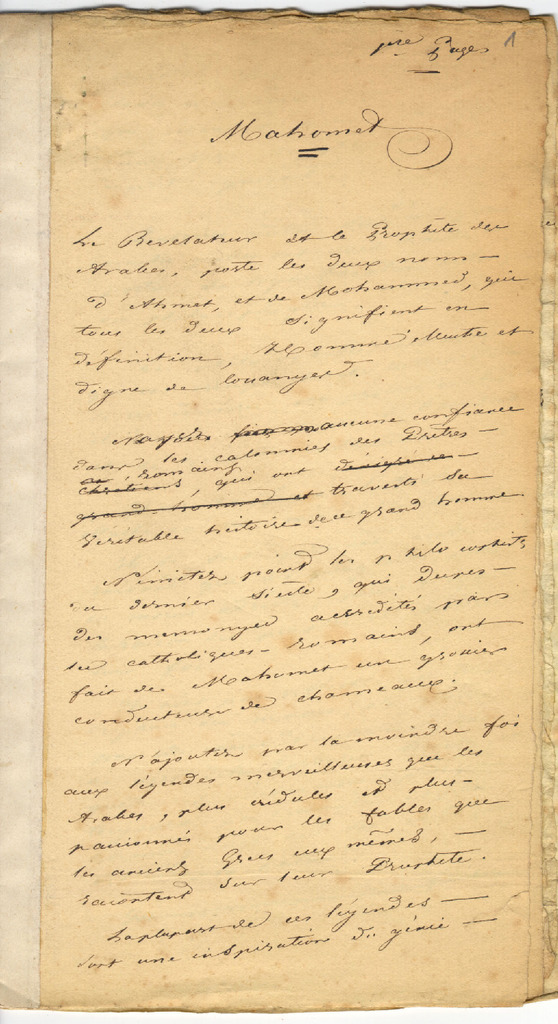 pre Page 1
Mahomet
Le Revelateur et le Prophète des
Arabes, porte les deux noms —
d'Ahmet, et de Mohammed, qui
tous les deux signifient en
definition, Homme Illustre et
digne de louanges.
N'ayez aucune confiance
dans les calomnies des Prêtres —
romains
chretiens, qui ont
grand homme et travesti la
veritable histoire de ce grand homme
N'imitez point les philosophes
du dernier Siècle, qui d'apres —
des mensonges accredités par
les catholiques-romains, ont
fait de Mahomet un grossier
conducteur de chameaux.
N'ajoutez pas la moindre foi
aux légendes merveilleuses que les
Arabes, plus crédules et plus —
passionnés pour les fables que
les anciens Grecs eux mêmes, —
racontent sur leur Prophète.
La plupart de ces légendes —
sont une inspiration du génie —